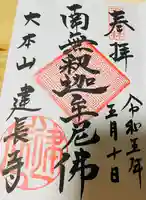 奉拝
令和五年
三月十日
南無釈迦牟尼佛
大本山 建長寺